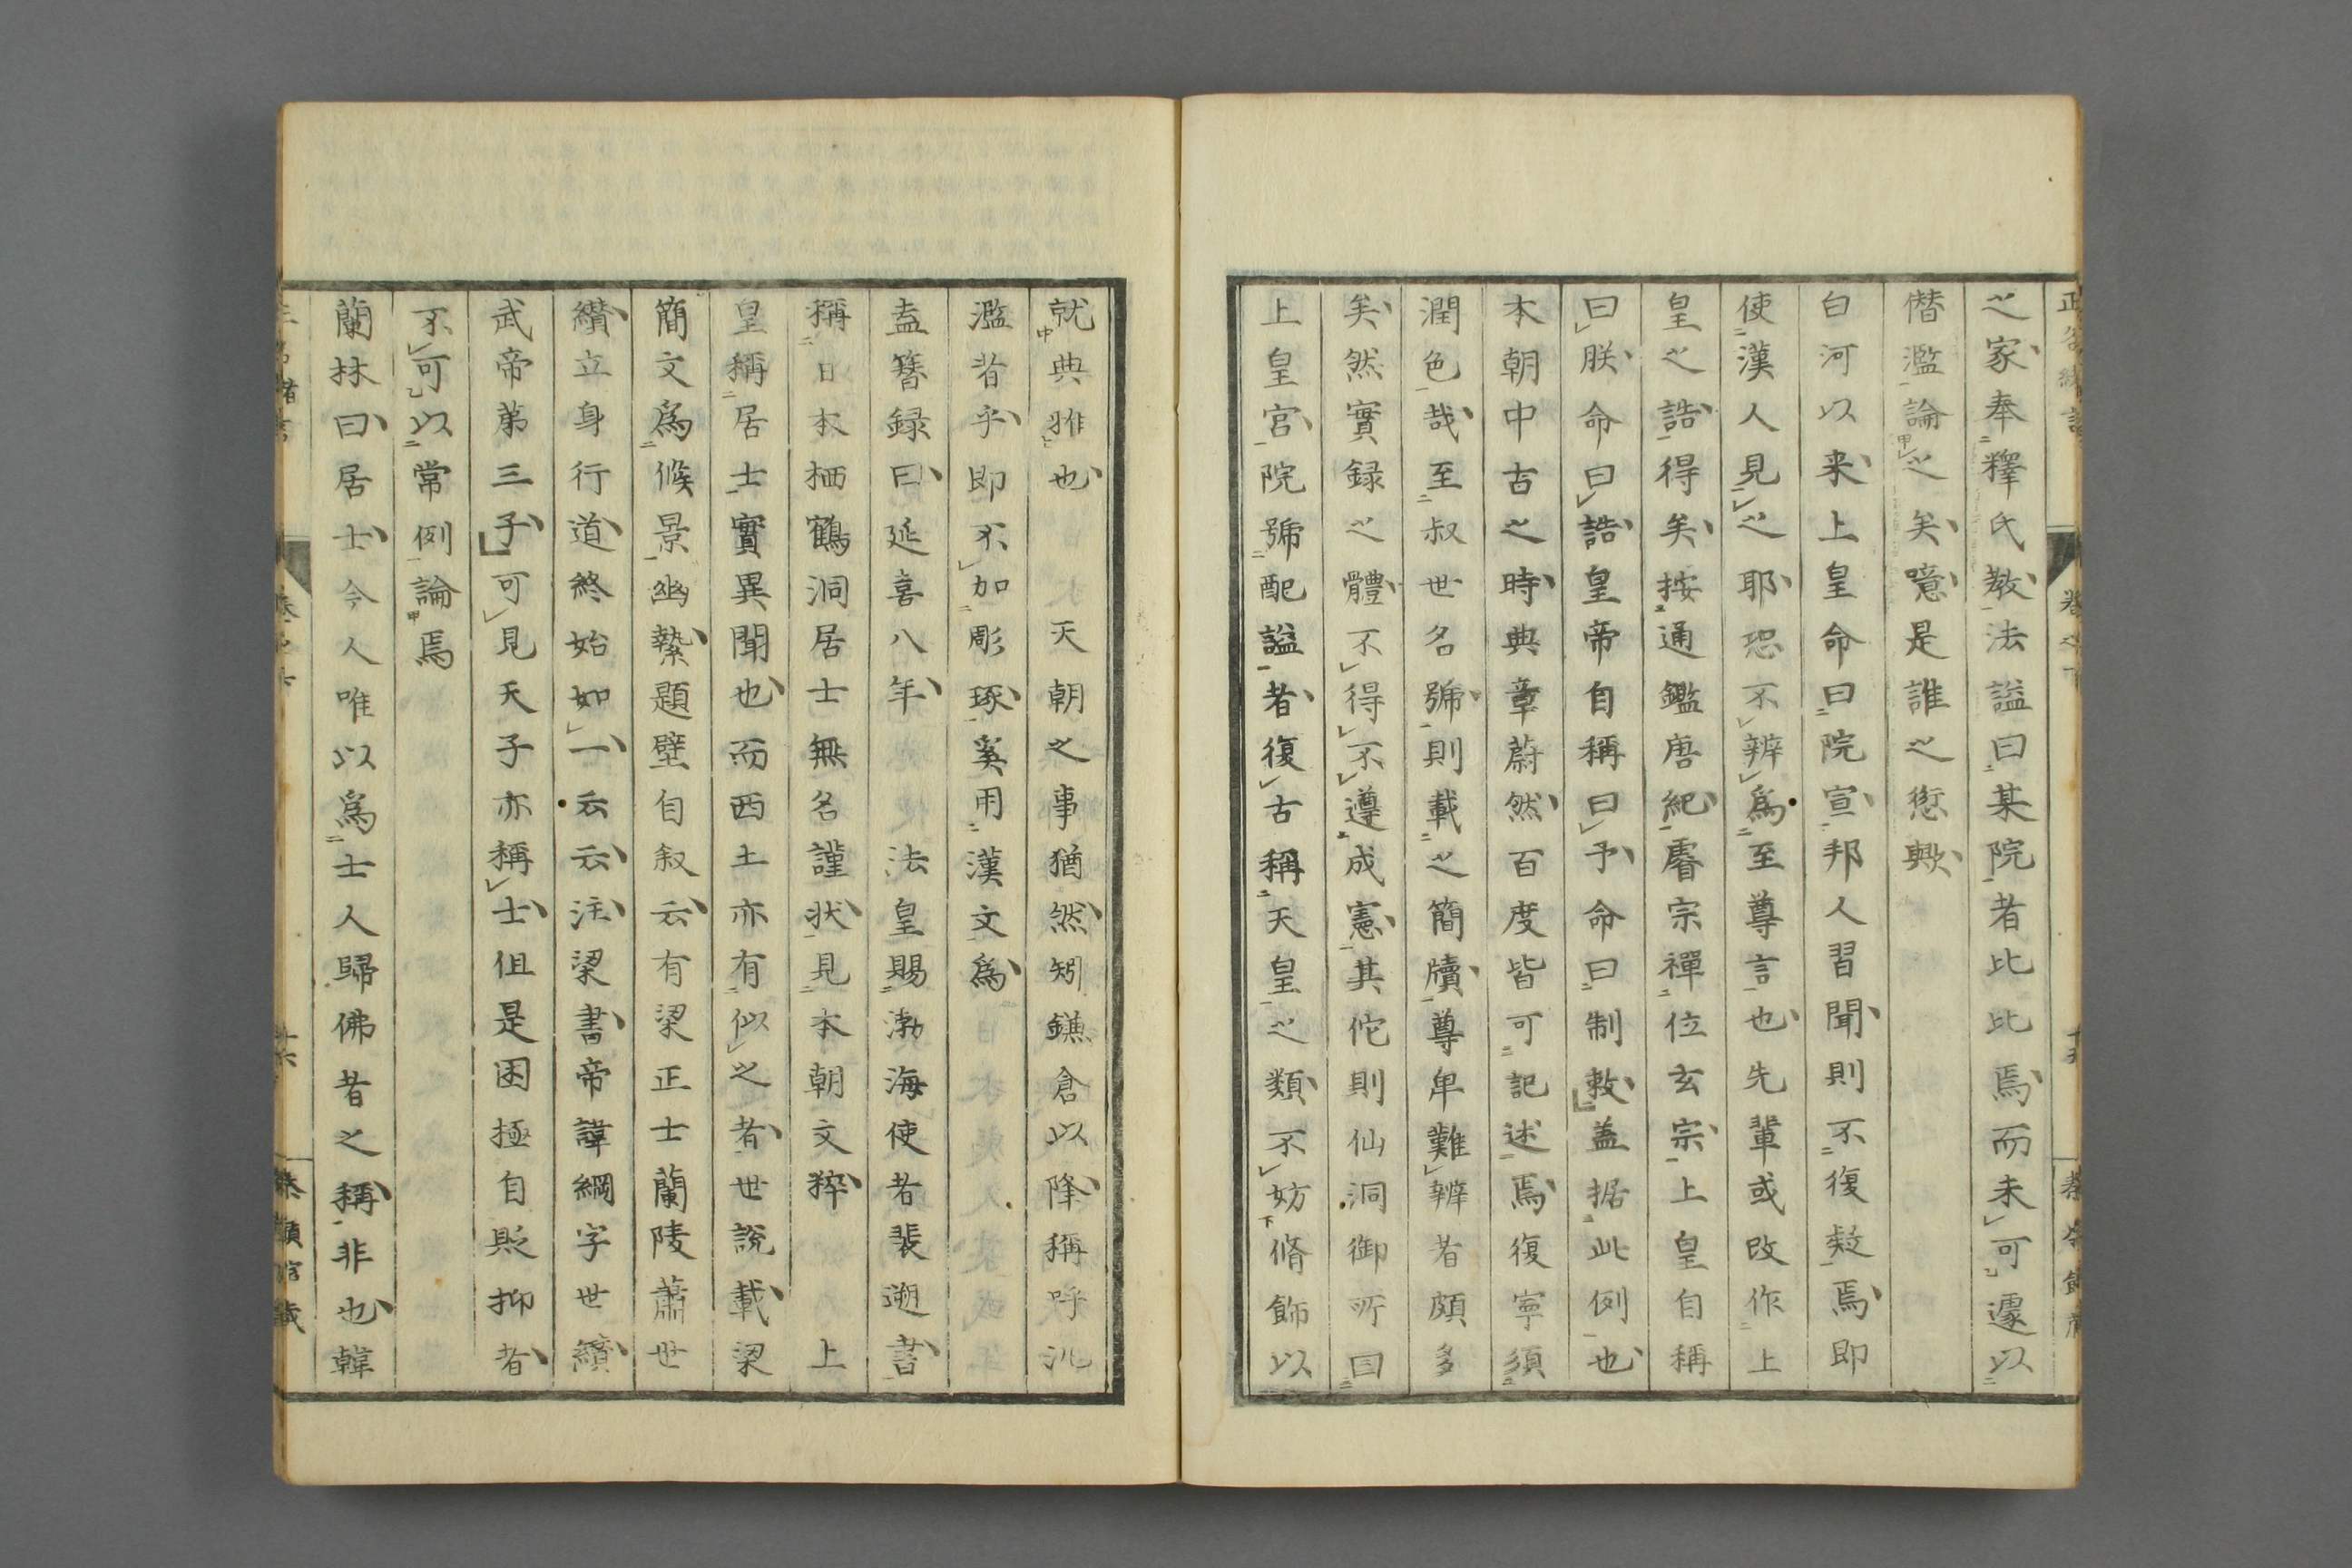 之家奉釋氏教法謚曰某院者比比焉而未可遽以
僭濫論之矣噫是誰之愆歟
白河以来上皇命曰院宣邦人習聞則不復疑焉即
使漢人見之耶恐不辨為至尊言也先輩或改作上
皇之誥得矣按通鑑唐紀睿宗禪位玄宗上皇自稱
曰朕命曰誥皇帝自稱曰予命曰制敕蓋据此例也
本朝中古之時典章蔚然百度皆可記述焉復寧須
潤色哉至叔世名號則載之簡牘尊卑難辨者頗多
矣然實録之體不得不遵成憲其佗則仙洞御所曰
上皇宮院號配謚者復古稱天皇之類不妨脩飾以
就典雅也天朝之事猶然矧鎌倉以降稱呼汎
濫者乎即不加彫琢奚用漢文為
盍簪録曰延喜八年法皇賜渤海使者裴遡書
稱日本栖鶴洞居士無名謹状見本朝文粹上
皇稱居士實異聞也而西土亦有似之者世說載梁
簡文為候景幽縶題壁自叙云有梁正士蘭陵蕭世
纘立身行道終始如一云云注梁書帝諱綱字世纘
武帝第三子可見天子亦稱士但是困極自貶抑者
不可以常例論焉
蘭林曰居士今人唯以為士人歸佛者之稱非也韓